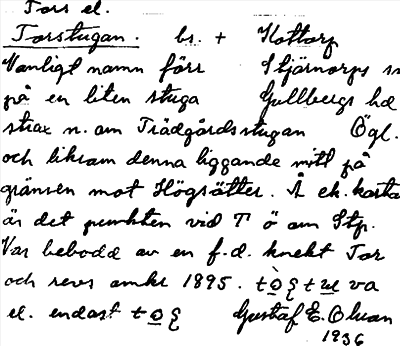 Tors el.
Torstugan. bs. + Kottorp
Vanligt namn förr Stjärnorps sn
på en liten stuga Gullbergs hd
strax n. om Trädgårdsstugan Ögl.
och liksom denna liggande mitt på
gränsen mot Högsätter. Å ek. karta
är det punkten vid T ö om Stp.
Var bebodd av en f.d. knekt Tor
och revs omkr 1895. va
el. endast
Gustaf E. Olson
1936